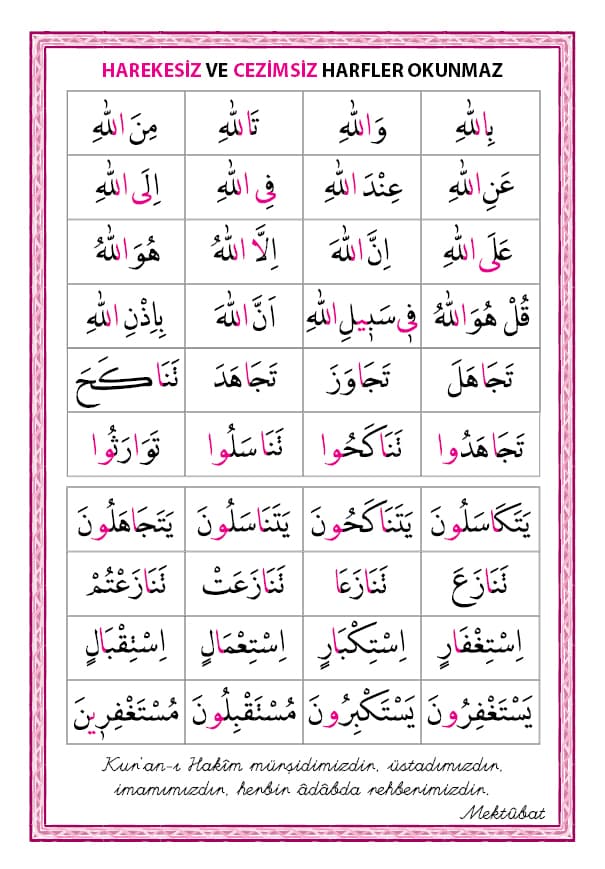 HAREKESİZ VE CEZİMSİZ HARFLER OKUNMAZ
بِاللّٰهِ وَاللّٰهِ تَاللّٰهِ مِنَ اللّٰهِ
عَنِ اللّٰهِ عِنْدَ اللّٰهِ فِى اللّٰهِ اِلَى اللّٰهِ
عَلَى اللّٰهِ اِنَّ اللّٰهَ اِلَّا اللّٰهُ هُوَ اللّٰهُ
قُلْ هُوَ اللّٰهُ فِى سَبِيلِ اللّٰهِ اَنَّ اللّٰهَ بِاِذْنِ اللّٰهِ
تَجَاهَلَ تَجَاوَزَ تَجَاهَدَ تَنَاكَحَ
تَجَاهَدُوا تَنَاكَحُوا تَنَاسَلُوا تَوَارَثُوا
يَتَكَاسَلُونَ يَتَنَاكَحُونَ يَتَنَاسَلُونَ يَتَجَاهَلُونَ
تَنَازَعَ تَنَازَعَا تَنَازَعَتْ تَنَازَعْتُمْ
اِسْتِغْفَارٍ اِسْتِكْبَارٍ اِسْتِعْمَالٍ اِسْتِقْبَالٍ
يَسْتَغْفِرُونَ يَسْتَكْبِرُونَ مُسْتَقْبِلُونَ مُسْتَغْفِرِينَ
Kur'an-ı Hakîm mürşidimizdir, üstadımızdır,
imamımızdır, herbir âdâbda rehberimizdir.
Mektûbat